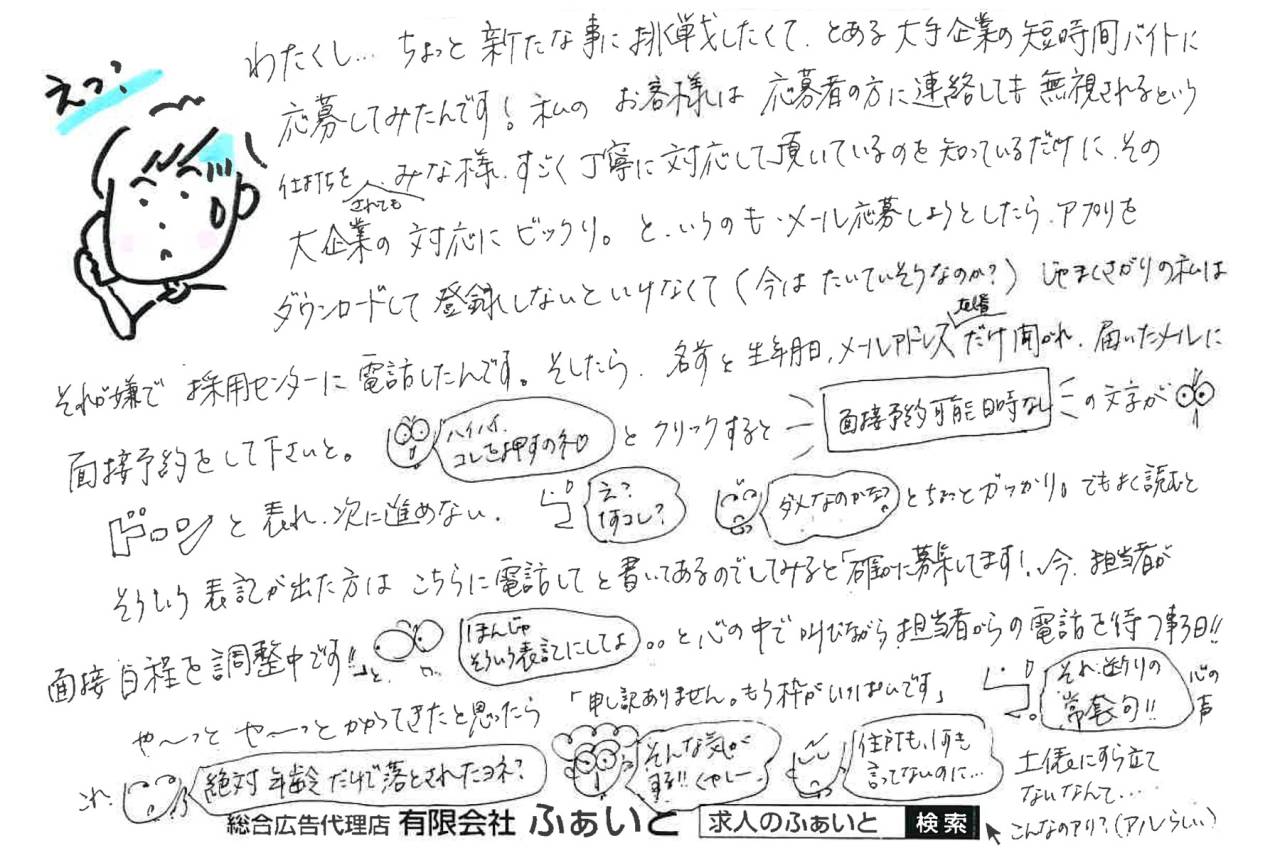 えっ?
わたくし… ちょっと新たな事に挑戦したくて、とある大手企業の短時間バイトに
応募してみたんです! 私の お客様は 応募者の方に連絡しても 無視されるという
仕打ちを されても みな様、すごく丁寧に対応して頂いているのを知っているだけに、その
大企業の 対応に ビックリ。と、いうのも、メール応募しようとしたら、アプリを
ダウンロードして 登録しないといけなくて(今は たいていそうなのか?) じゃまくさがりの私は
それが嫌で 採用センターに電話したんです。そしたら、名前と生年月日、メールアドレス だけ聞かれ、届いたメールに
面接予約をして下さいと。 ハイハイ、コレを押すのネ と クリックすると 面接予約可能日時なし の文字が
ドーン と 表れ、次に進めない。 え?なにコレ? ダメなのかな? とちょっとガッカリ。でもよく読むと
そういう 表記が出た方は こちらに電話してと書いてあるのでしてみると「確かに募集してます!、今、担当者が
面接日程を調整中です!!」と、 ほんじゃそういう表記にしてよ 。。と心の中で叫びながら、担当者からの電話を待つ事3日!!
や〜っと や〜っと かかってきたと思ったら 「申し訳ありません。もう枠がいっぱいです」 それ、断りの常套句!! 心の声
これ、 絶対 年齢だけで落とされたヨネ? そんな気がする!! くやしー 住所も、何も言ってないのに… 土俵にすら立てないなんて…
こんなのアリ?(アルらしい)
総合広告代理店 有限会社 ふぁいと 求人のふぁいと 検索